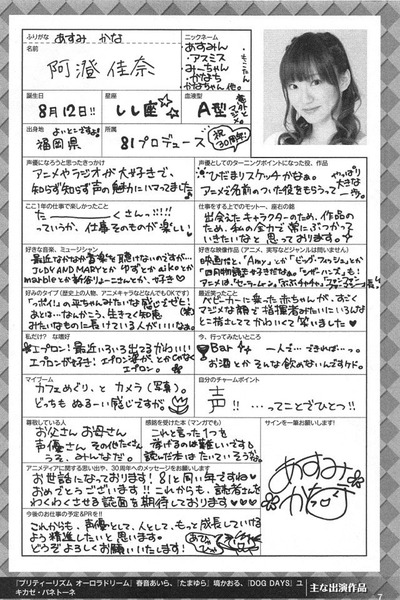 ふりがな あすみ かな
名前
阿澄 佳奈
ニックネーム
あすみん
・アスミス
みーちゃん
・かなち
かなちゃん 他。
・もこたん
誕生日
8月12日!!
星座
しし座☆
血液型
A型
意外とマジメ。
出身地
よいとこですよ
福岡県
所属
81プロデュース
祝 30周年!
声優になろうと思ったきっかけ
アニメやラジオが大好きで、
知らず知らず声の魅力にハマってました
声優としてのターニングポイントになった役、作品
ひだまりスケッチかなぁ。
やっぱり大きな一歩。
アニメで名前のついた役をもらうって
ここ1年の仕事で楽しかったこと
た―――くさんっ!!!
っていうか、仕事そのものが楽しい
仕事をする上でのモットー、座右の銘
出会えたキャラクターのため、作品の
ため、私の全力で常にぶつかって
いきたいなと思っております。
好きな音楽、ミュージシャン
最近なかなか音楽を聴けないのですが…
JUDY AND MARYとか ゆずとか aikoとか
marbleとか 新谷りょーこさんとか、好き♡
好きな映像作品(アニメ、実写などジャンルは問いません)
映画だと、「Amy」とか「ビッグ・フィッシュ」とか
「四月物語」も好きだなぁ。「シザーハンズ」も!
好みのタイプ(歴史上人物、アニメキャラクターなどなんでもOKです)
「っポイ!」の平ちゃんみたいな感じですぜ!
あとは…なんかこう、生きてく知恵
みたいなものに長けている人がいいなぁ。
最近笑ったこと
ベビーカーに乗った赤ちゃんが、すごく
マジメな顔で指揮者みたいにいろんな
とこ指さしててかわいくて笑いました♡
私だけ?な嗜好
エプロン!最近いろいろ出てるかわいい
エプロンが好き!エプロン姿が、とかじゃなく
エプロン。
今、行ってみたいところ
Bar
一人で…できれば…っ。
お酒とかそんな飲めないんですけど。
マイブーム
カフェめぐり、と カメラ(写真)。
どっちもぬる〜い感じですが。
自分のチャームポイント
声!! …ってことでひとつ!!
尊敬している人
お父さん お母さん
声優さん、そのほかたくさん
うぅ、みんなだ。
感銘を受けた本(マンガでも)
これと言った1つを
挙げるのは難しいです
読んだ本はたいてい そうかも。
サインを一筆お願いします!
あすみかな
アニメディアに関する思い出や、30周年へのメッセージをお願いします
お世話になっております!81と同い年ですね
おめでとうございます!!これからも、読者さんを
わくわくさせる誌面を期待しております♡♡♡
今後のお仕事の予定&PRを!!
これからも、声優として、人として、もって成長していける
よう精進したいと思います。
どうぞよろしくお願いいたします!
『プリティーリズム オーロラドリーム』春音あいら、『たまゆら』塙かおる、『DOG DAYS』ユ
キカゼ・パネトーネ
主な出演作品
7